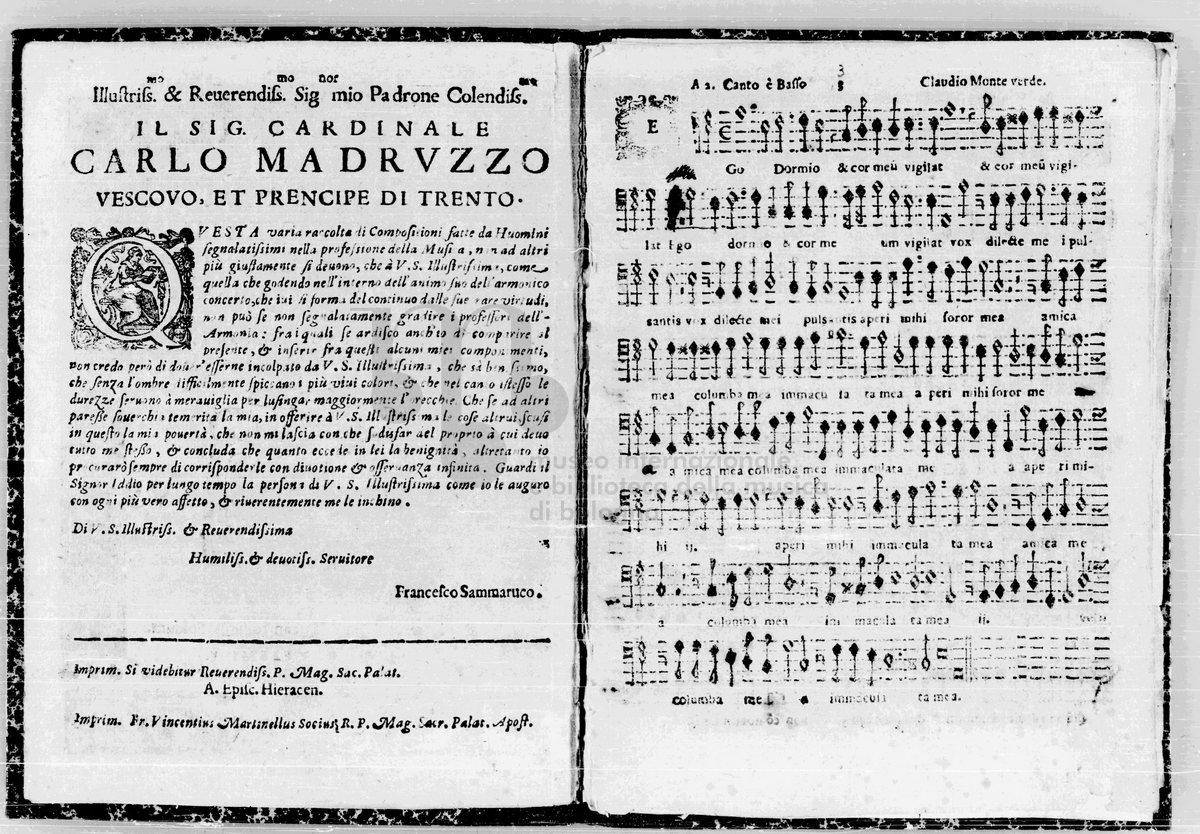 mo mo nor
Illustriss. & Reuerendiss. Sig mio Padrone Colendiss.
IL SIG. CARDINALE
CARLO MADRVZZO
VESCOVO, ET PRENCIPE DI TRENTO.
QVESTA varia raccolta di Compositioni fatte da Huomini
segnalatissimi nella professione della Musi a, non ad altri
più giustamente si deuono, che à V. S. Illustrissima, come
quella che godendo nell'interno dell'animo suo dell'armonico
concerto, che iui si forma del continuo dalle sue rare virtudi,
non può se non segnalatamente gradire i professori dell'-
Armonia: fra i quali se ardisco anch'io di comparire al
presente, & inserir fra questi alcuni miei componimenti,
non credo però di douer esserne incolpato da V. S. Illustrissima, che sà benissimo,
che senza l'ombre difficilmente spiccano i più viui colori, & che nel canto istesso le
durezze seruono à merauiglia per lusingar maggiormente l'orecchie. Che se ad altri
paresse souerchia temerità la mia, in offerire à V. S. Illustriss ma le cose altrui, scusi
in questo la mia pouertà, che non mi lascia con che sodisfar del proprio à cui deuo
tutto me stesso, & concluda che quanto eccede in lei la benignità, altretanto io
procurarò sempre di corrisponderle con diuotione & osseruanza infinita. Guardi il
Signor Iddio per lungo tempo la persona di V. S. Illustrissima come io le auguro
con ogni più vero affetto, & riuerentemente me le inchino.
Di V. S. Illustriss. & Reuerendissima
Humiliss. & deuotiss. Seruitore
Francesco Sammaruco.
Imprim. Si videbitur Reuerendiss. P. Mag. Sac. Palat.
A. Episc. Hieracen.
Imprim. Fr. Vincentius Martinellus Socius R. P. Mag. Sacr. Palat. Apost.
3
A 2. Canto è Basso 8 Claudio Monte verde.
EGo Dormio & cor meũ vigilat & cor meũ vigi-
lat Ego dormio & cor me um vigilat vox dilecte me i pul-
santis vox dilecte mei pulsantis aperi mihi soror mea amica
mea columba mea immacu la ta mea a peri mihi soror me
a a mica mea columba mea immaculata me a a ape ri mi-
hi ij. aperi mihi immacula ta mea amica me
a columba mea im macula ta mea ij.
columba mea immacula ta mea.
museo internazionale
e biblioteca della musica
di bologna